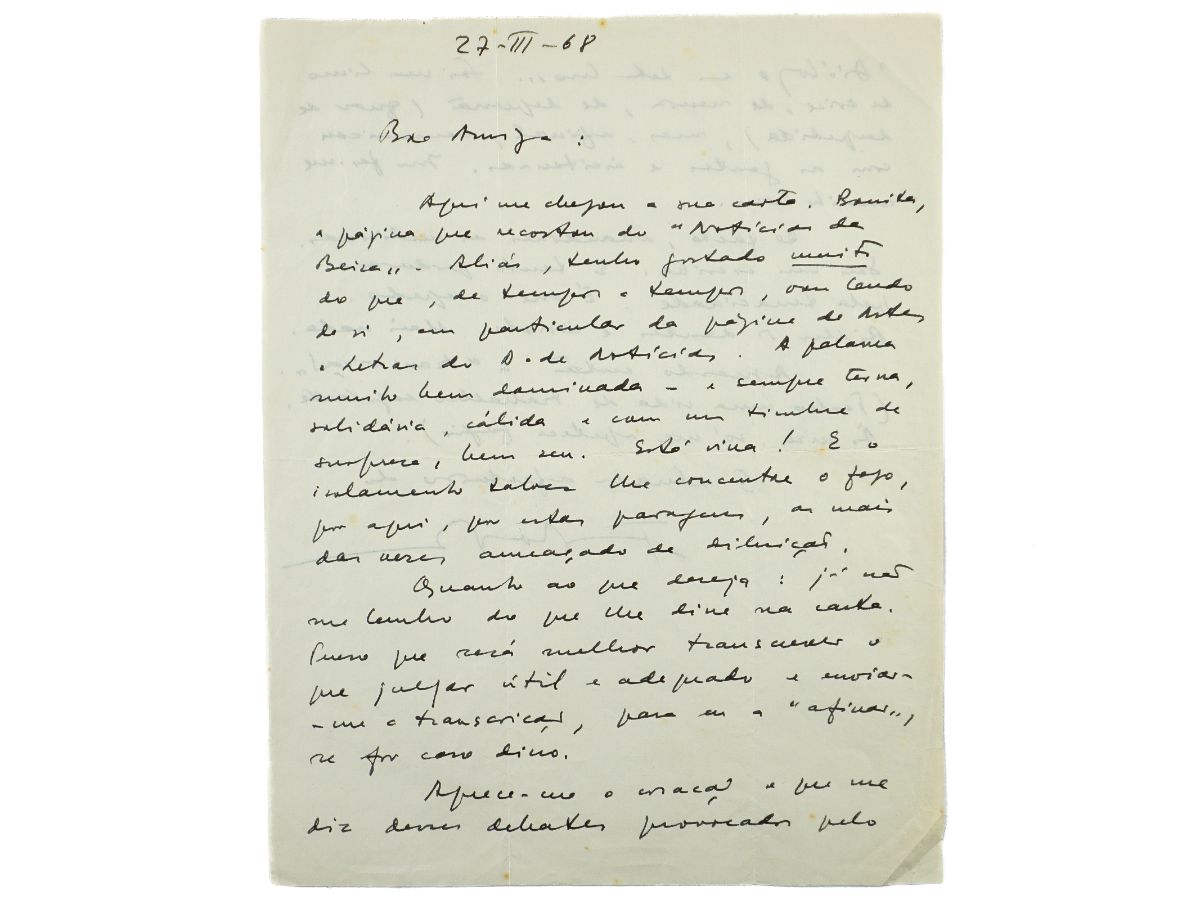 27-III-68
Boa Amiga:
Aqui me chegou a sua carta. Bonita,
a página que recortou do "Notícias da
Beira". Aliás, tenho gostado muito
do que, de tempos a tempos, vou lendo
de si, em particular da página de Artes
e Letras do D. de Notícias. A palavra
muito bem dominada - e sempre terna,
solidária, cálida e com um timbre de
surpresa, bem seu. Está viva! E o
isolamento talvez lhe concentre o fogo,
por aqui, por estas paragens, as mais
das vezes ameaçado de diluição.
Quanto ao que deseja: já não
me lembro do que lhe disse na carta.
Penso que será melhor transcrever o
que julgar útil e adequado e enviar-
-me a transcrição, para eu a "afinar",
se for caso disso.
Aquece-me o coração o que me
diz desses debates provocados pelo